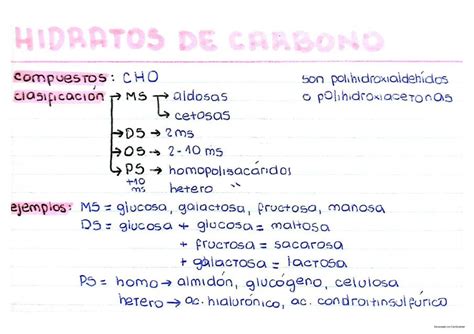 HIDRATOS DE CARBONO
compuestos: CHO
son polihidroxialdehídos
o polihidroxiacetonas
clasificación → MS → aldosas
↳ cetosas
→ DS → 2ms
→ OS → 2-10 ms
→ PS → homopolisacáridos
+10 ms
hetero "
ejemplos: MS = glucosa, galactosa, fructosa, manosa
DS = glucosa + glucosa = maltosa
+ fructosa = sacarosa
+ galactosa = lactosa
PS = homo → almidón, glucógeno, celulosa
hetero → ac. hialurónico, ac. condroitinsulfúrico